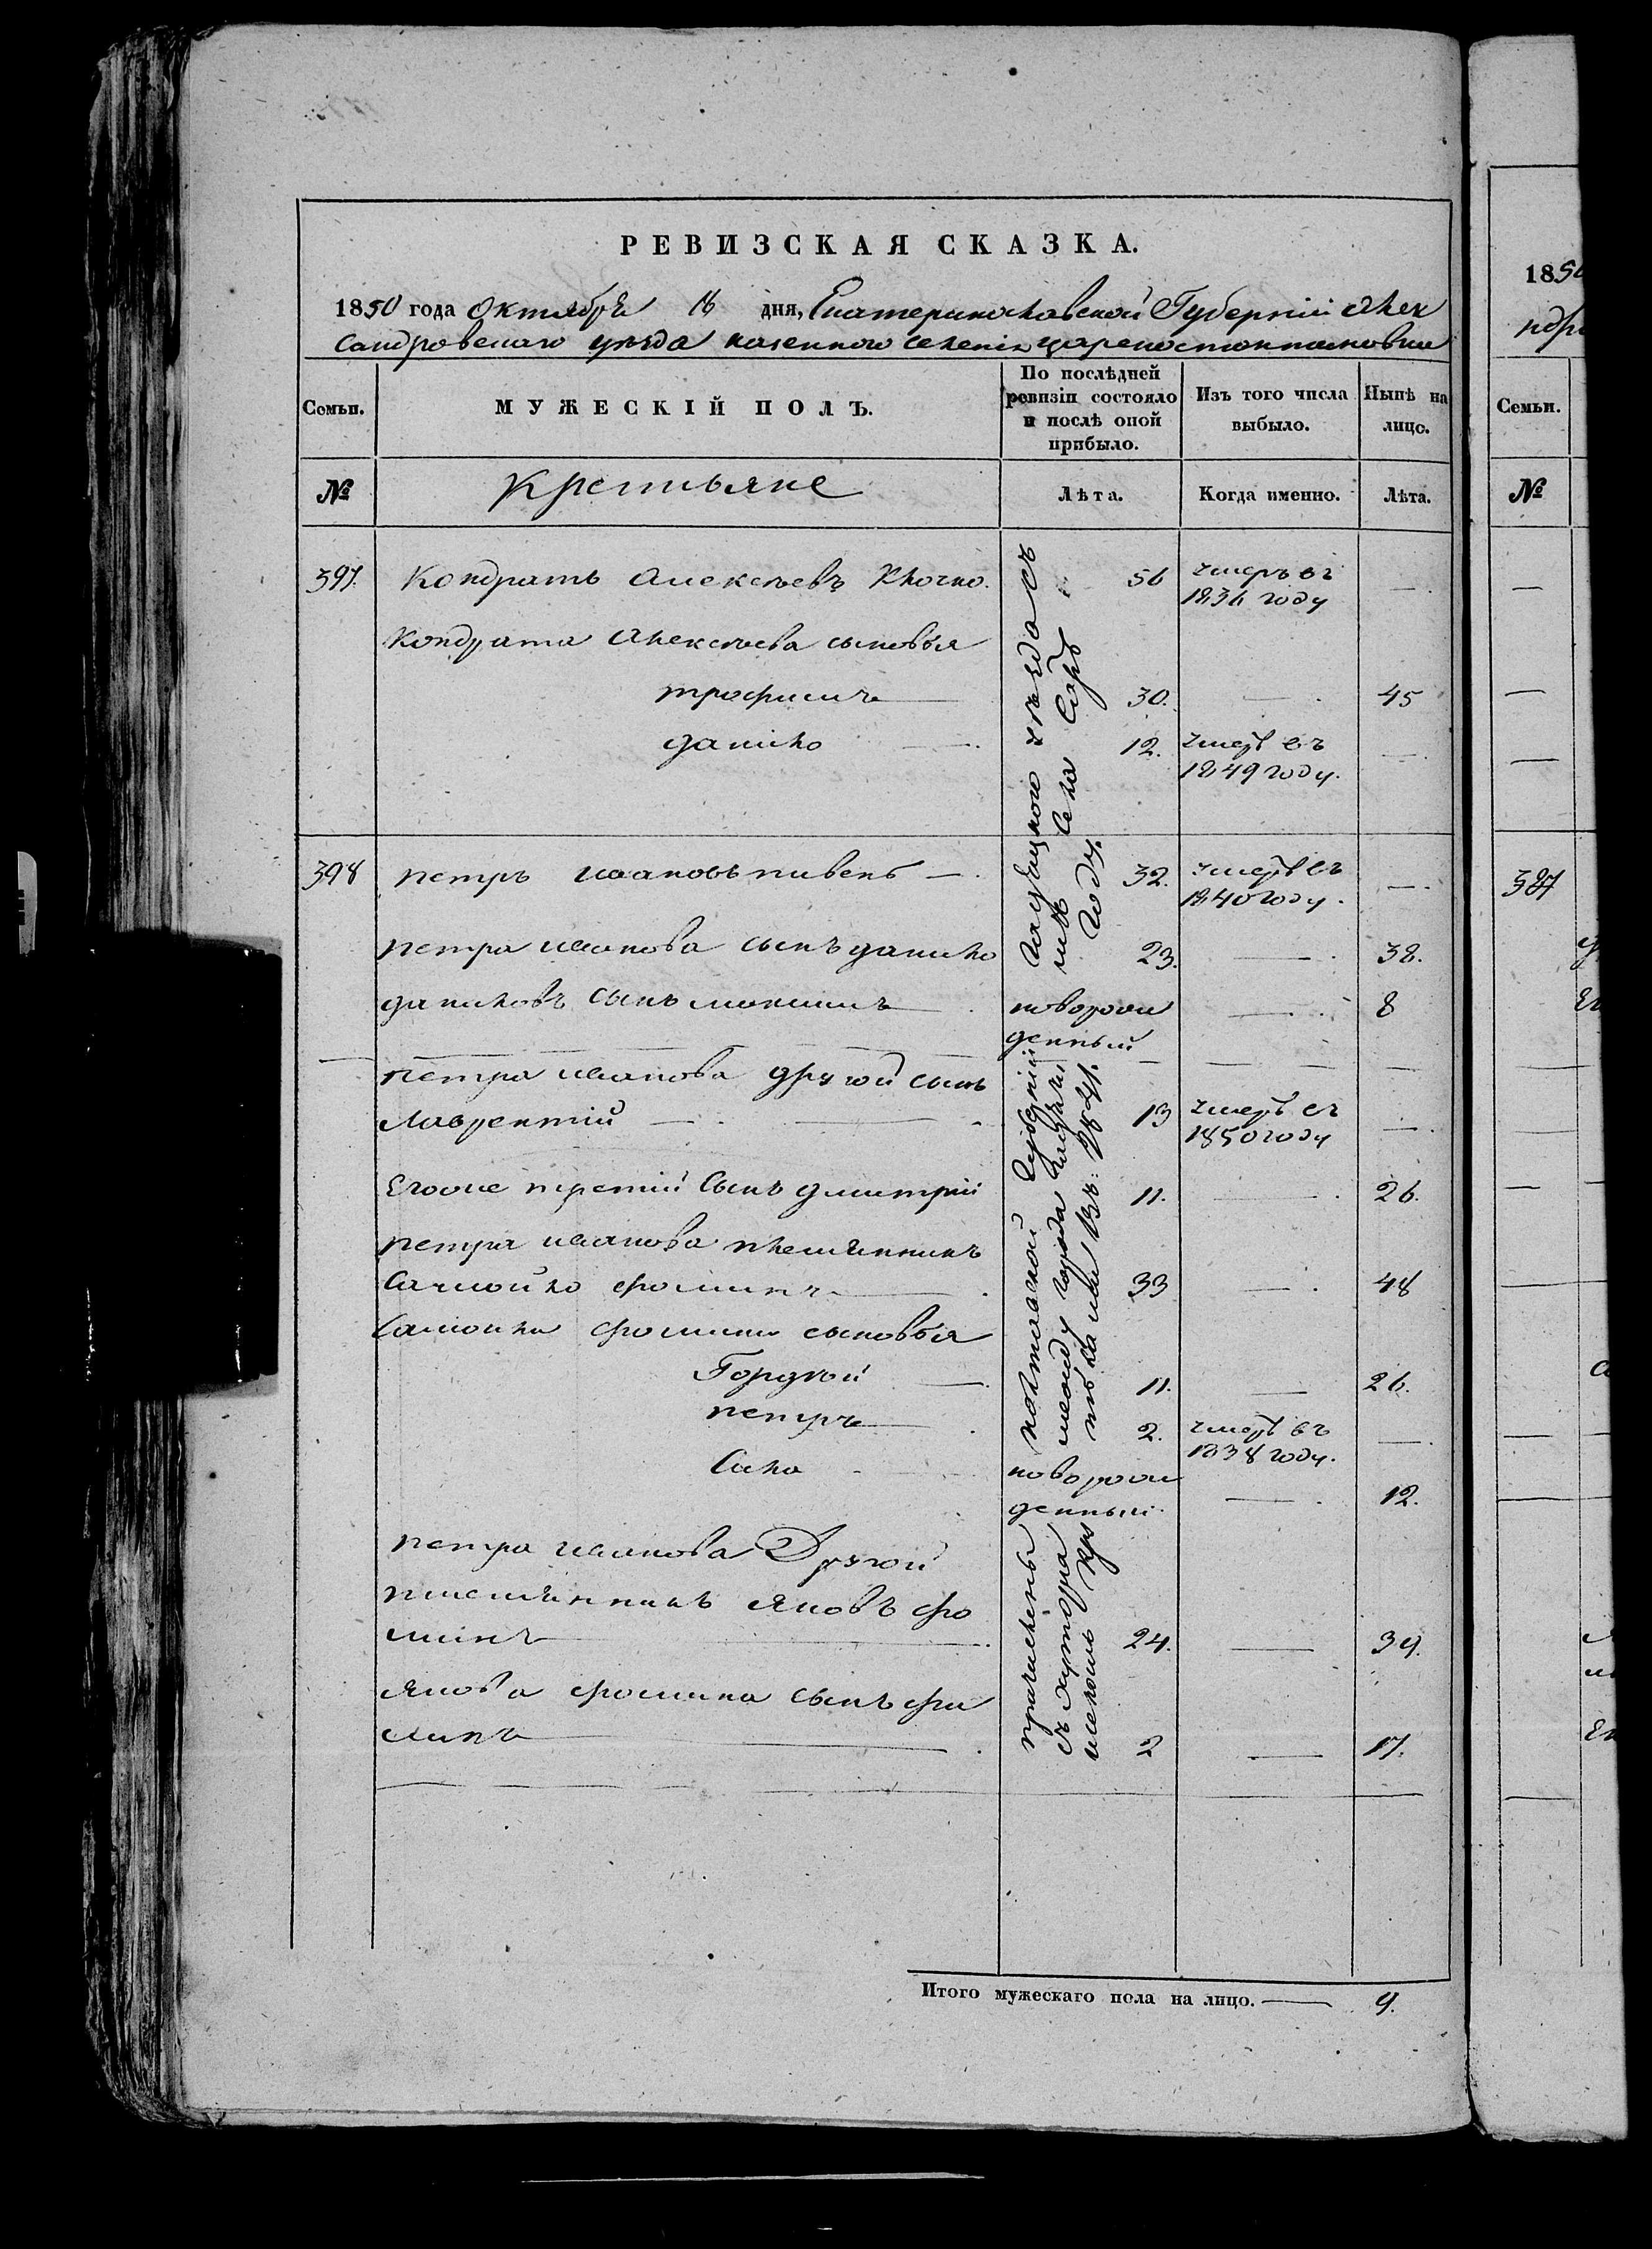 РЕВИЗСКАЯ СКАЗКА.
1850 года Октября 16 дня, Екатеринославской Губерніи Алек
сандровскаго уезда казенного селенія Цареконстантиновки
Семьи.
МУЖЕСКІЙ ПОЛЪ.
По послѣдней
ревизіи состояло
и послѣ оной
прибыло.
Изъ того числа
выбыло.
Нынѣ на
лицо.
№
Крестьяне
Лѣта.
Когда именно.
Лѣта.
397. Кондратъ Алексѣевъ Клочко. 56 умеръ въ —.
1836 году
Кондрата Алексѣева сыновья
трофимъ 30. —. 45
данило —. 12. умеръ въ —.
1849 году.
398 петръ ивановъ пивень —. 32. умеръ въ —.
1840 году.
петра иванова сынъ данило 23. —. 38.
даниловъ сынъ максимъ . новорож —. 8
денный
петра иванова другой сынъ
Лаврентій —. —. 13 умеръ въ —.
1850 году
Егоже третій сынъ дмитрій 11. —. 26.
петра иванова племянникъ
Самойло фоминъ . 33 —. 48
Самойлы фомина сыновья
Гордѣй —. 11. — 26.
петръ . 2. умеръ въ —.
1838 году.
Сила новорож —. 12.
денный.
петра иванова Другой
племянникъ яковъ фо
минъ . 24. — 39.
якова фомина сынъ фи
липъ . 2 — 17.
причислены полтавской Губерніи
уезда съ
Села
году.
Итого мужескаго пола на лицо. — 9.
1850
Семьи.
№
387